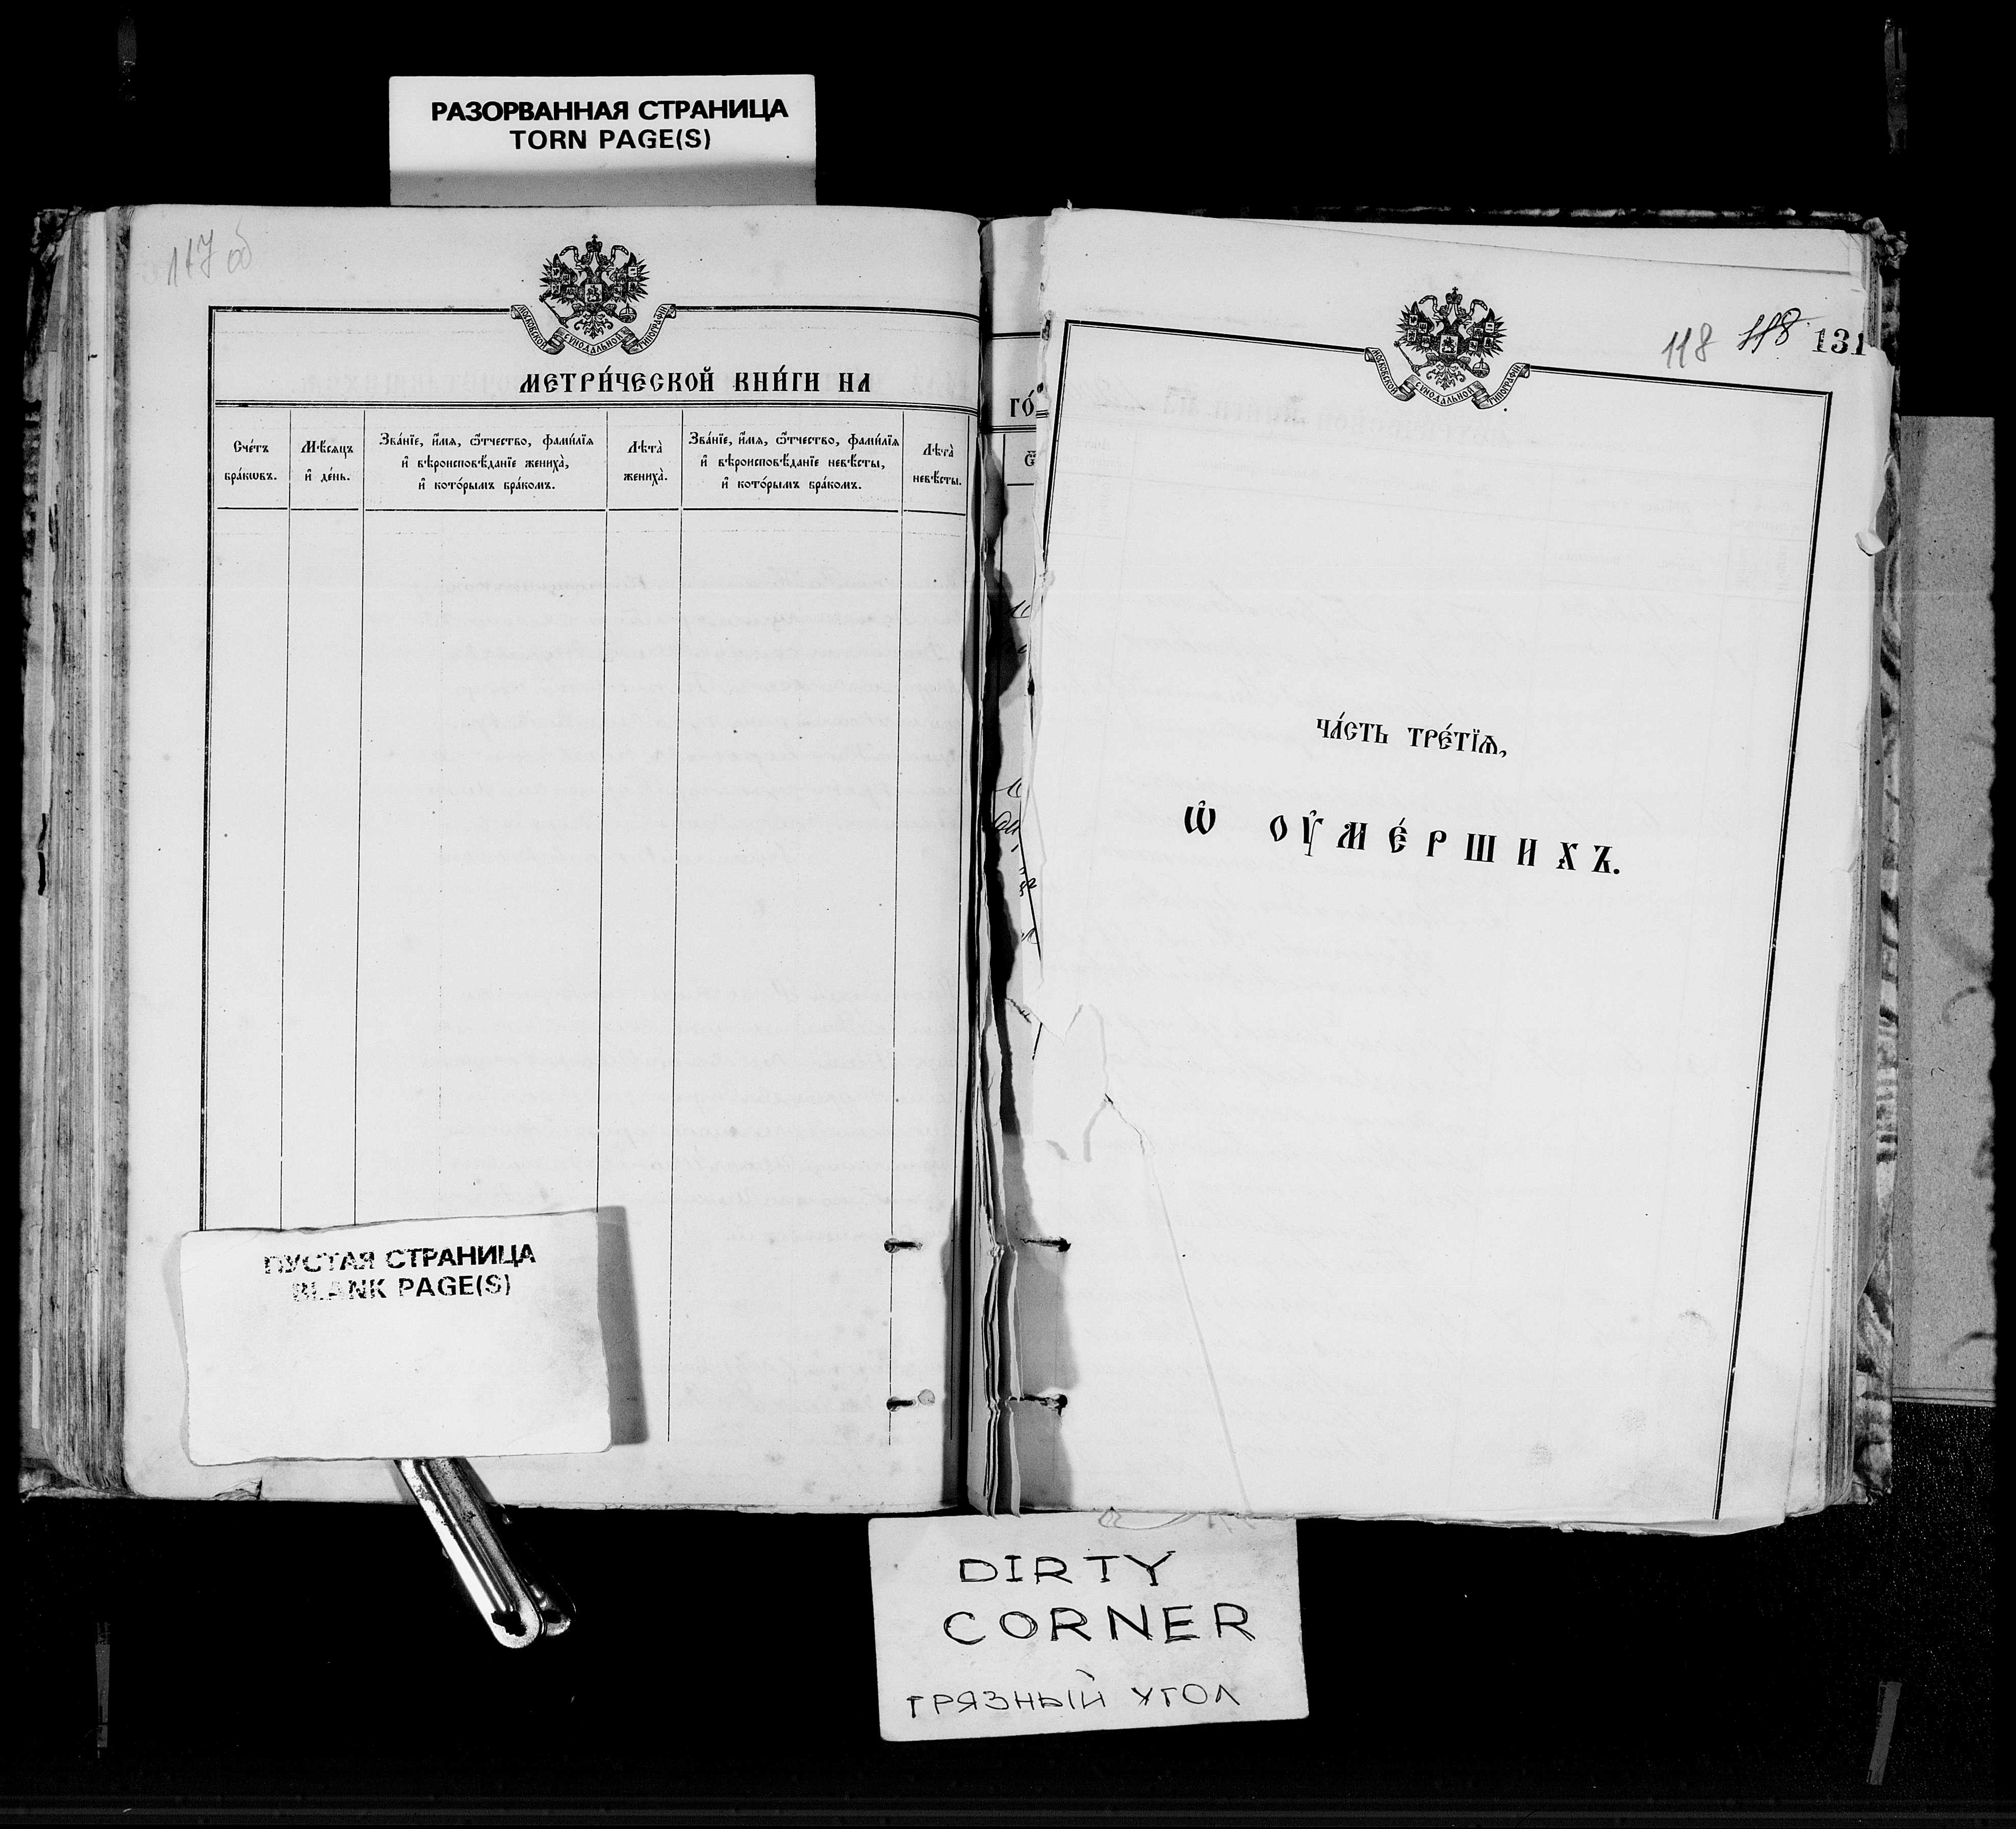 РАЗОРВАННАЯ СТРАНИЦА
TORN PAGE(S)
117 об
МОСКОВСКОЙ СѴНОДАЛЬНОЙ ТИПОГРАФІИ
МЕТРИ́ЧЕСКОЙ КНИ́ГИ НА
Сче́тъ
бра́кѡвъ.
Мѣ́сяцъ
и҆ де́нь.
Зва́нїе, и҆́мя, ѻ҆́тчество, фами́лїя
и҆ вѣроисповѣ́данїе жениха̀,
и҆ кото́рымъ бра́комъ.
Лѣта̀
жениха̀.
Зва́нїе, и҆́мя, ѻ҆́тчество, фами́лїя
и҆ вѣроисповѣ́данїе невѣ́сты,
и҆ кото́рымъ бра́комъ.
Лѣта̀
невѣ́сты.
ПУСТАЯ СТРАНИЦА
BLANK PAGE(S)
ГО́
118 118 131
МОСКОВСКОЙ СѴНОДАЛЬНОЙ ТИПОГРАФІИ
ЧА́СТЬ ТРЕ́ТЇѦ,
Ѡ҆ ОУ҆МЕ́РШИХЪ.
DIRTY
CORNER
ГРЯЗНЫЙ УГОЛ